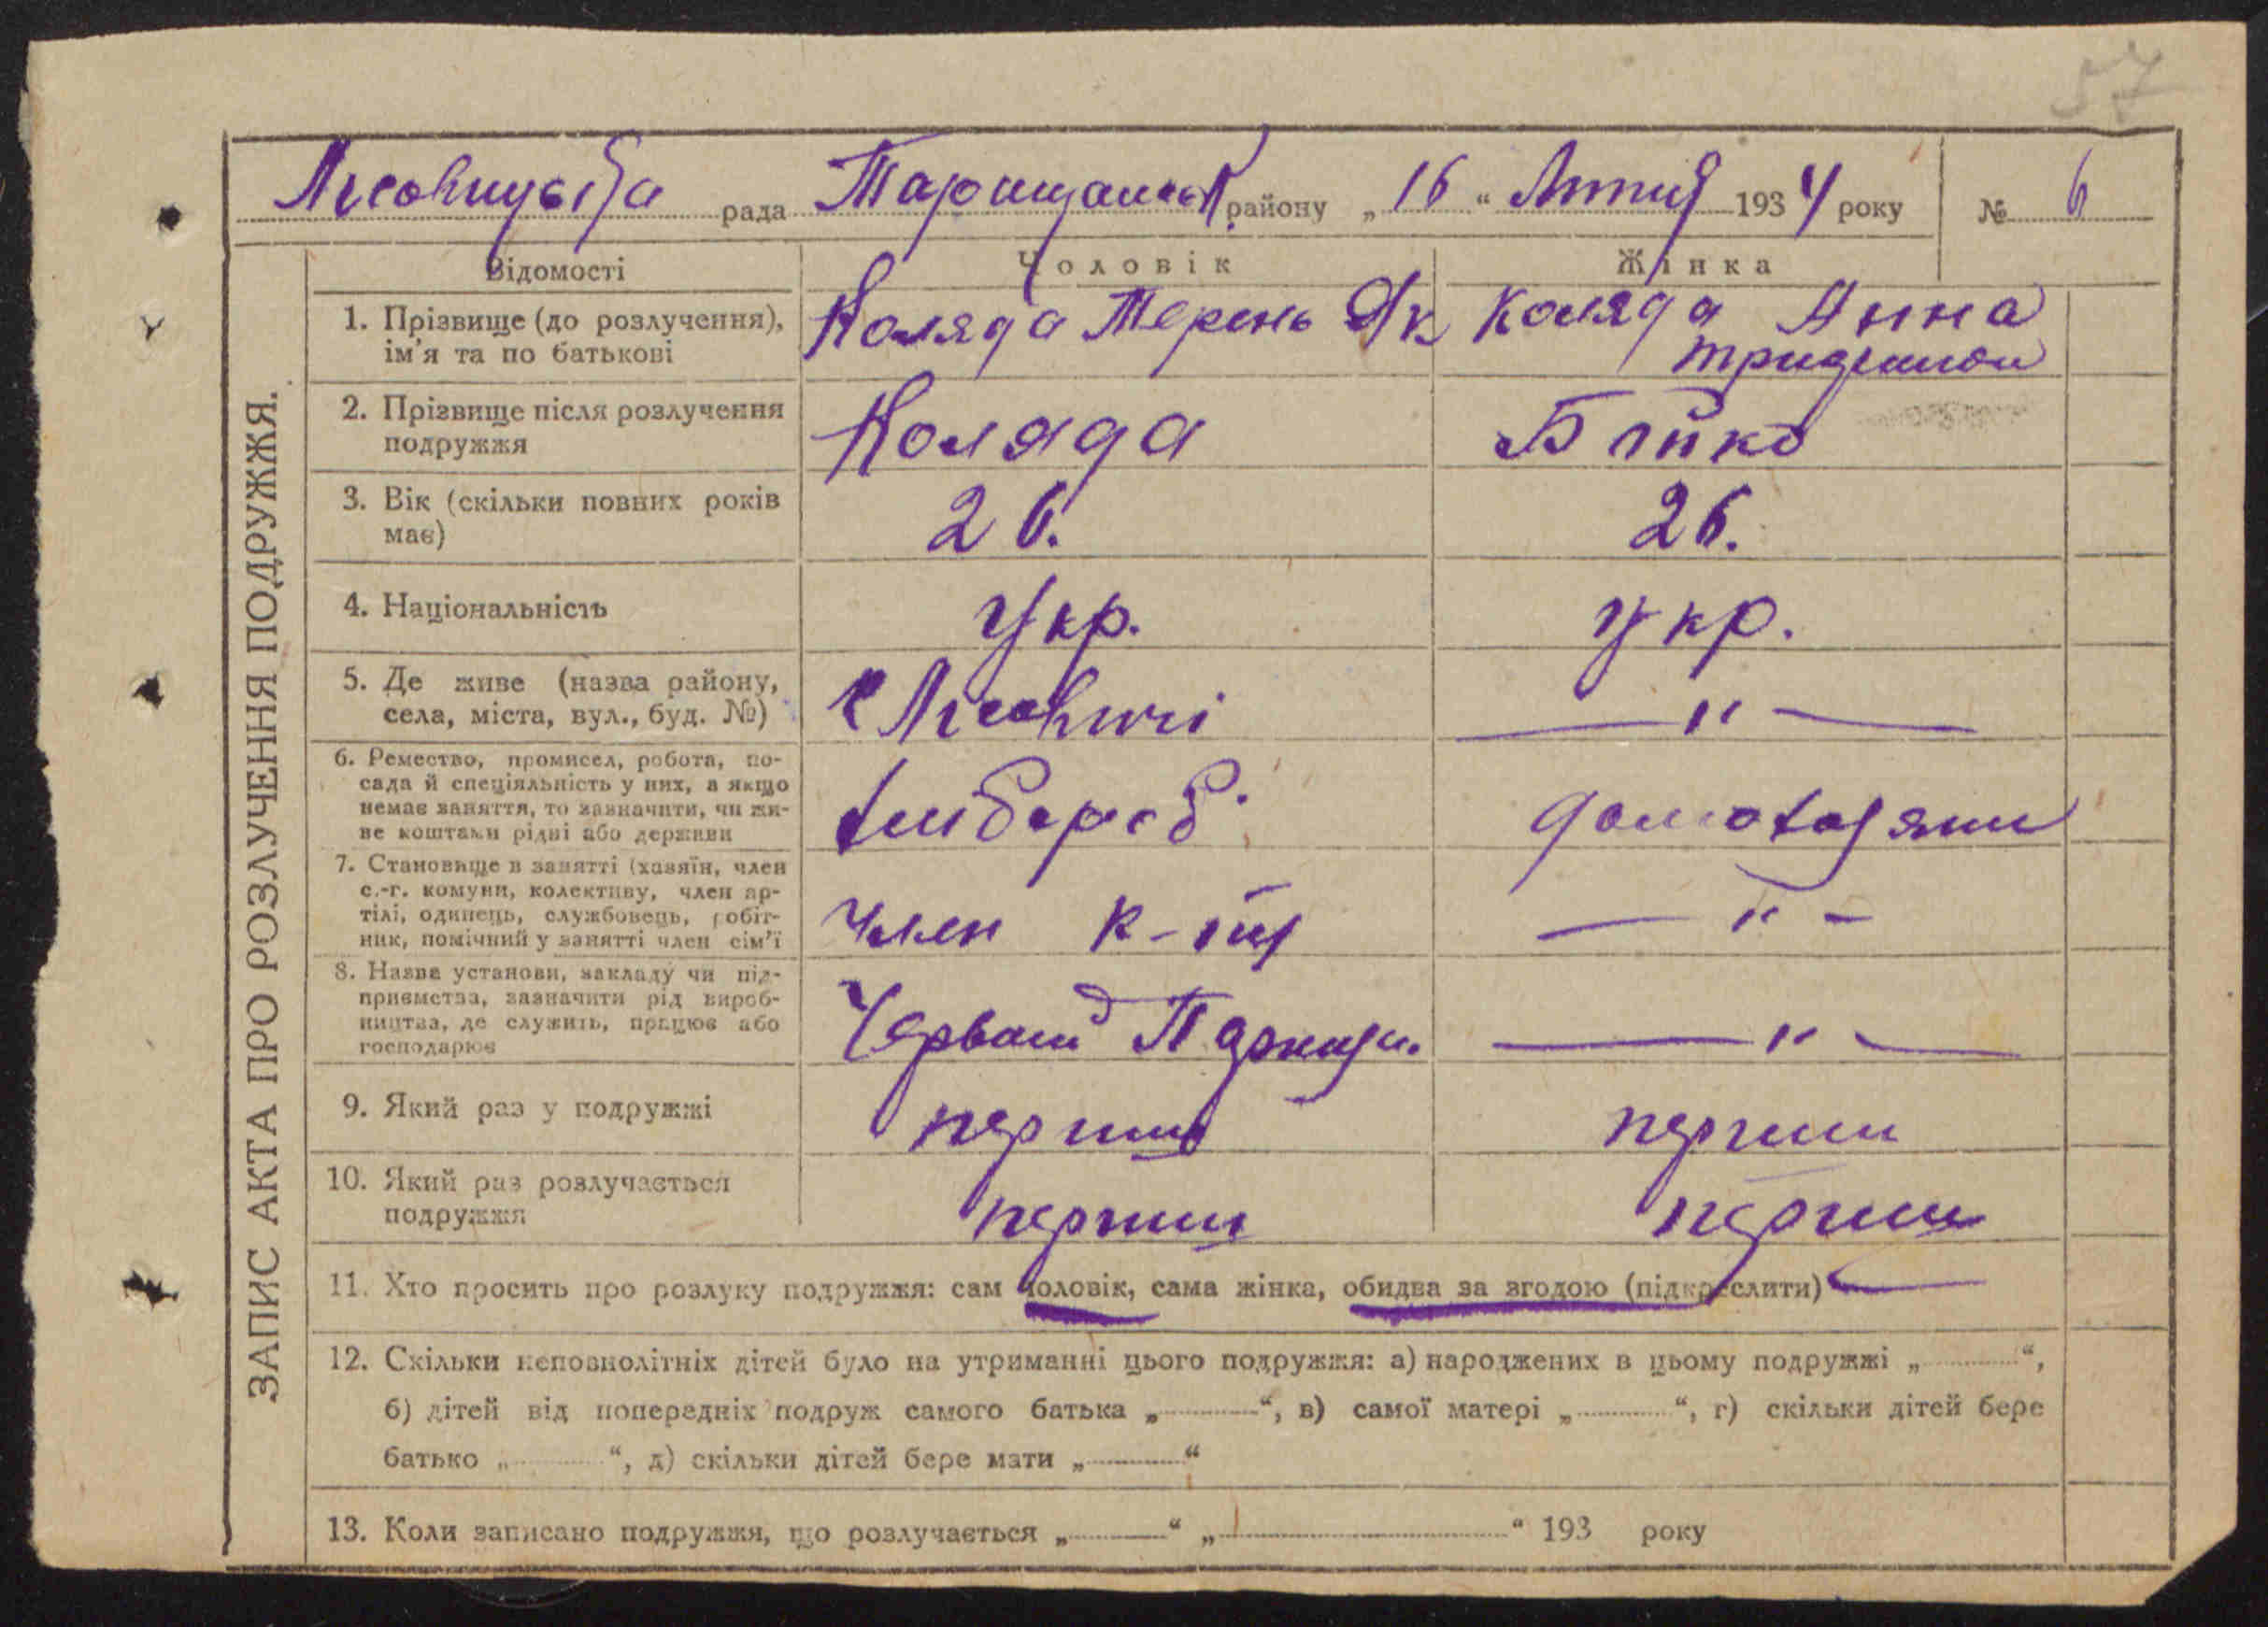 57
Лісовицька рада Таращанськ району „16“ Лютий 1934 року № 6
ЗАПИС АКТА ПРО РОЗЛУЧЕННЯ ПОДРУЖЖЯ.
Відомості Чоловік Жінка
1. Прізвище (до розлучення), Коляда Терень Як Коляда Анна
ім'я та по батькові
2. Прізвище після розлучення Коляда Бойко
подружжя
3. Вік (скільки повних років 26. 26.
має)
4. Національність Укр. Укр.
5. Де живе (назва району, с Лісовичі — " —
села, міста, вул., буд. №)
6. Ремество, промисел, робота, по-
сада й спеціяльність у них, а якщо
немає заняття, то зазначити, чи жи- хлібороб
ве коштами рідні або держави
7. Становище в занятті (хазяїн, член
с.-г. комуни, колективу, член ар-
тілі, одинець, службовець, робіт- член к-ту — " —
ник, помічний у занятті член сім'ї
8. Назва установи, закладу чи під-
приємства, зазначити рід вироб-
ництва, де служить, працює або — " —
господарює
9. Який раз у подружжі перший перший
10. Який раз розлучається перший перший
подружжя
11. Хто просить про розлуку подружжя: сам чоловік, сама жінка, обидва за згодою (підкреслити)
12. Скільки неповнолітніх дітей було на утриманні цього подружжя: а) народжених в цьому подружжі „ “,
б) дітей від попередніх подруж самого батька „ “, в) самої матері „ “, г) скільки дітей бере
батько „ “, д) скільки дітей бере мати „ “
13. Коли записано подружжя, що розлучається „ “ „ “ 193 року